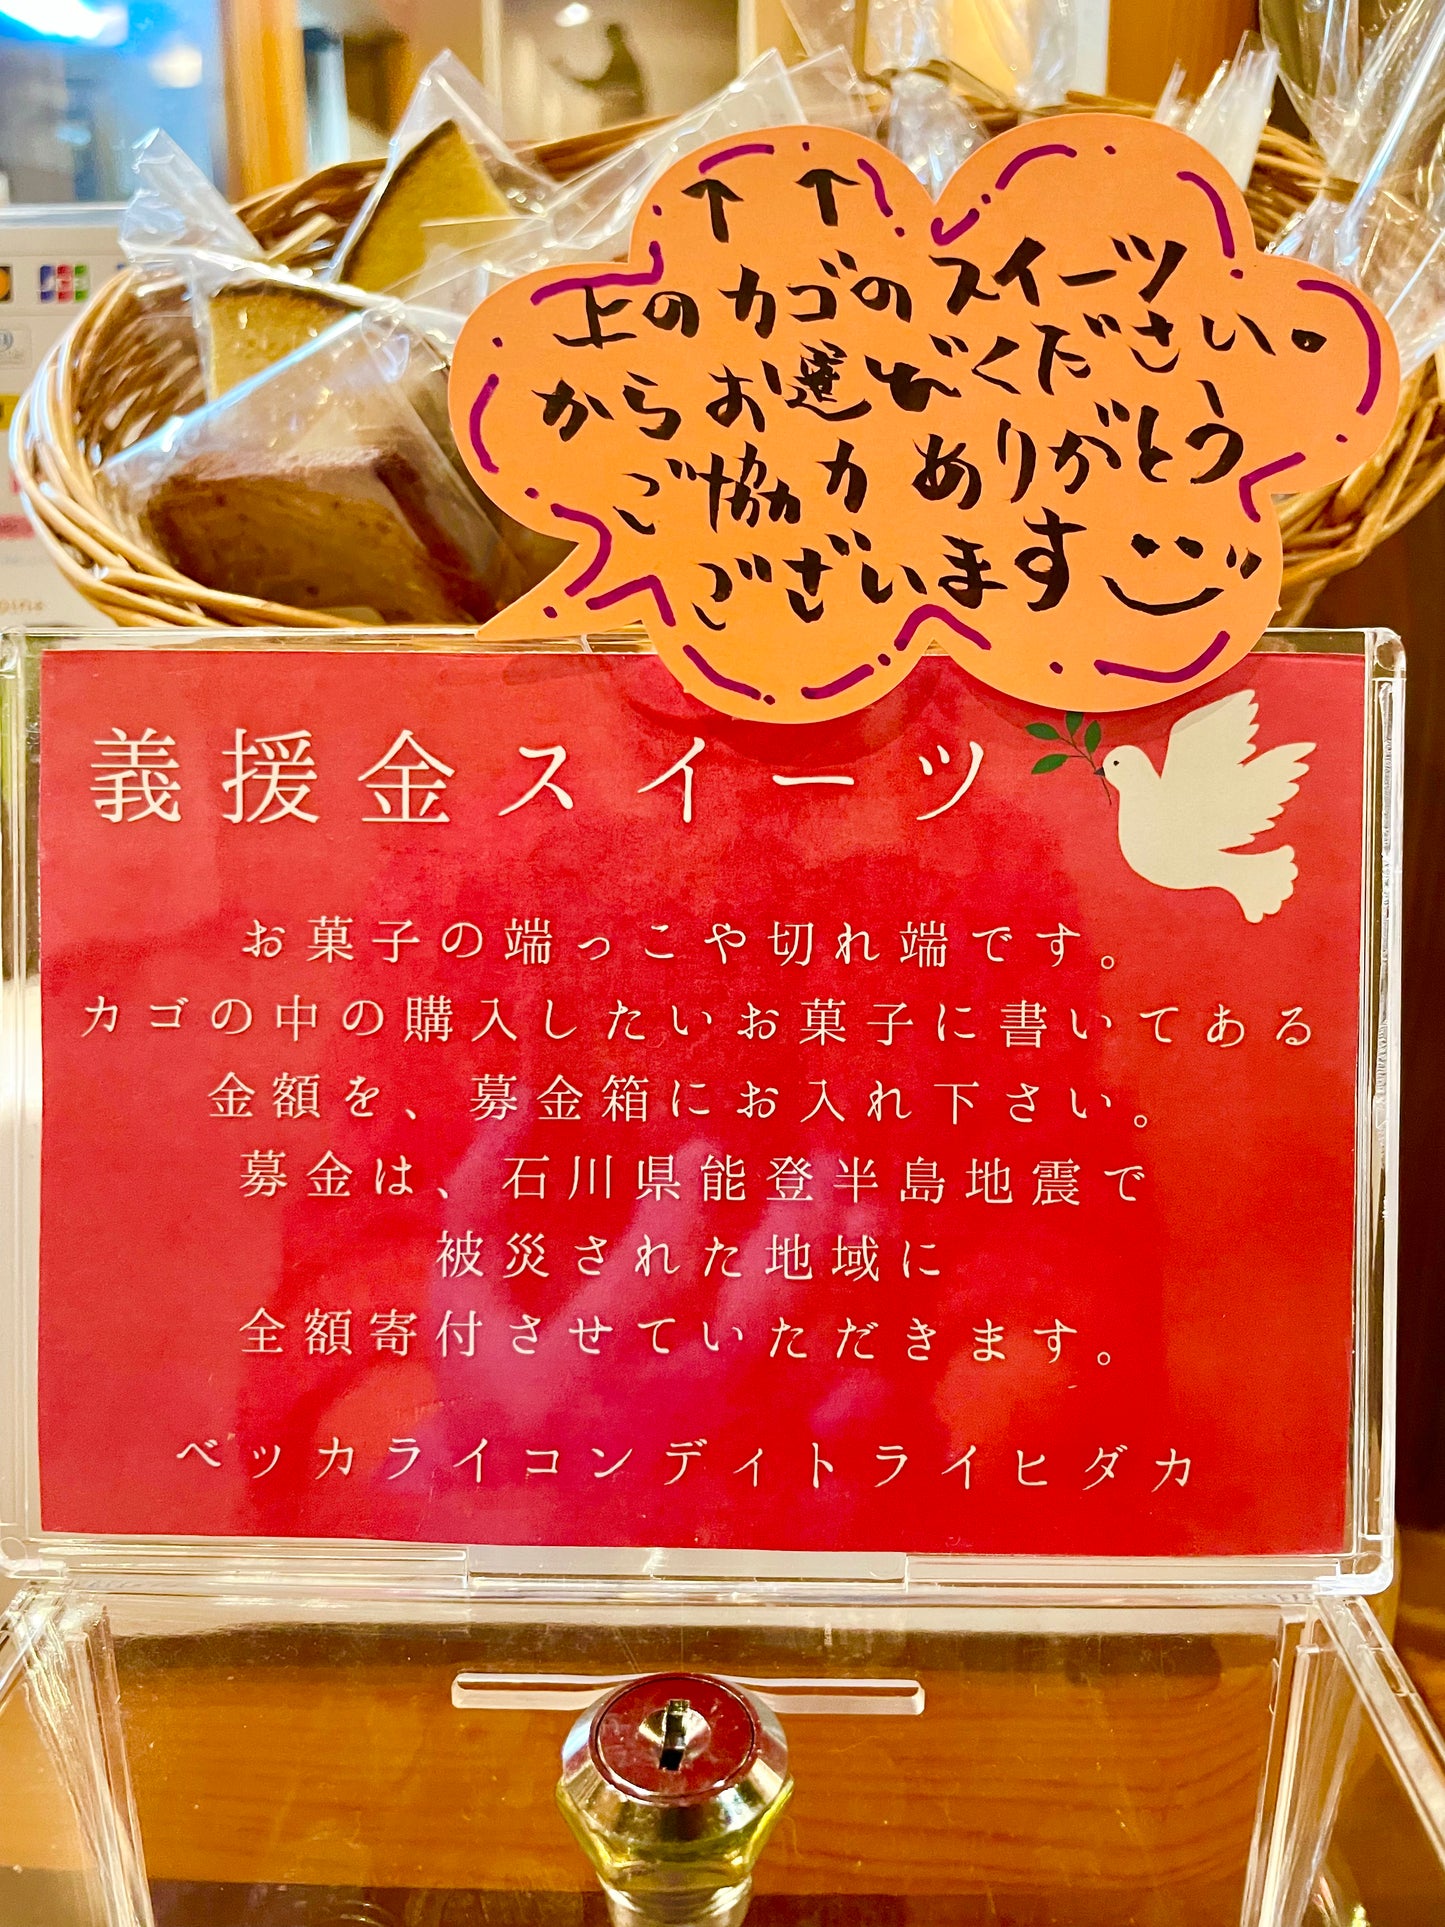 JCB
↑ ↑
上のカゴのスイーツ
からお選びください。
ご協力ありがとう
ございます
義援金スイーツ
お菓子の端っこや切れ端です。
カゴの中の購入したいお菓子に書いてある
金額を、募金箱にお入れ下さい。
募金は、石川県能登半島地震で
被災された地域に
全額寄付させていただきます。
ベッカライコンディトライヒダカ